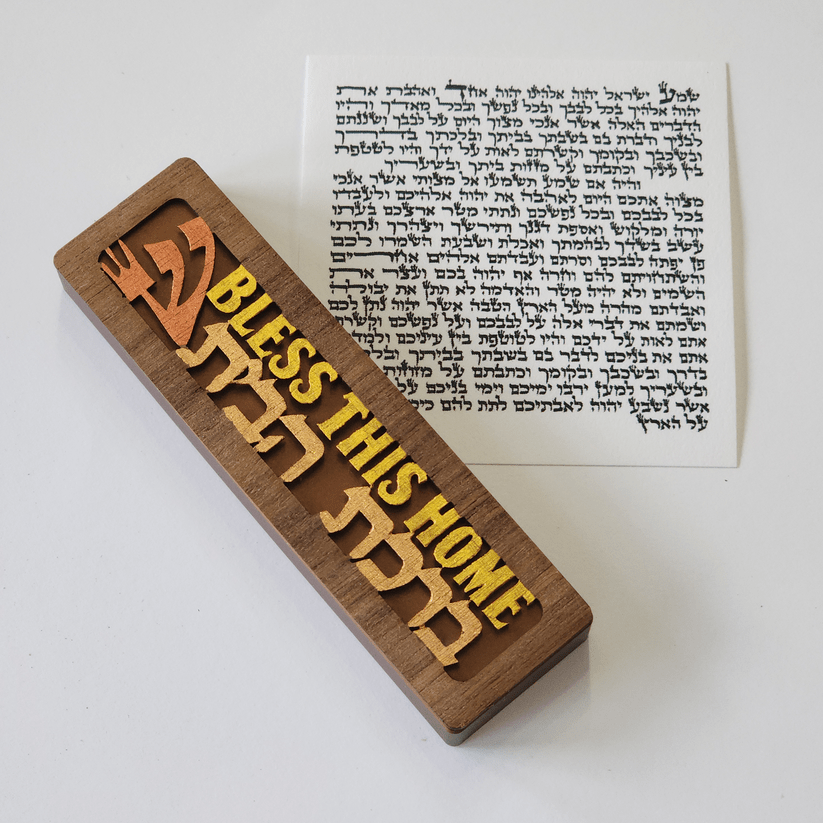 ש
BLESS THIS HOME
ברכת הבית
שמע ישראל יהוה אלהינו יהוה אחד ואהבת את
יהוה אלהיך בכל לבבך ובכל נפשך ובכל מאדך והיו
הדברים האלה אשר אנכי מצוך היום על לבבך ושננתם
לבניך ודברת בם בשבתך בביתך ובלכתך בדרך
ובשכבך ובקומך וקשרתם לאות על ידך והיו לטטפת
בין עיניך וכתבתם על מזזות ביתך ובשעריך
והיה אם שמע תשמעו אל מצותי אשר אנכי
מצוה אתכם היום לאהבה את יהוה אלהיכם ולעבדו
בכל לבבכם ובכל נפשכם ונתתי מטר ארצכם בעתו
יורה ומלקוש ואספת דגנך ותירשך ויצהרך ונתתי
עשב בשדך לבהמתך ואכלת ושבעת השמרו לכם
פן יפתה לבבכם וסרתם ועבדתם אלהים אחרים
והשתחויתם להם וחרה אף יהוה בכם ועצר את
השמים ולא יהיה מטר והאדמה לא תתן את יבולה
ואבדתם מהרה מעל הארץ הטבה אשר יהוה נתן לכם
ושמתם את דברי אלה על לבבכם ועל נפשכם
אתם לאות על ידכם והיו לטוטפת בין עיניכם
אתם את בניכם לדבר בם בשבתך בביתך
בדרך ובשכבך ובקומך וכתבתם על
ובשעריך למען ירבו ימיכם וימי בניכם
אשר נשבע יהוה לאבתיכם לתת להם
על הארץ